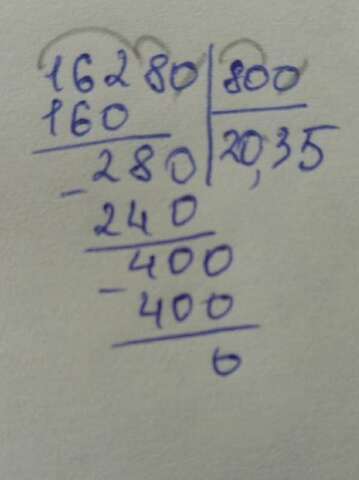 16280 800
160 20,35
- 280
240
- 400
400
0